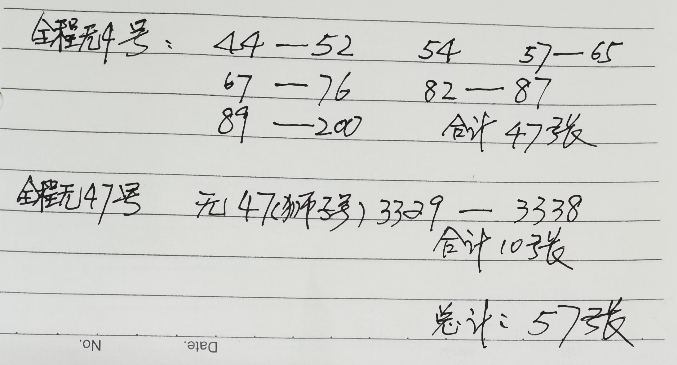 全程无4号: 44—52 54 57—65
67—76 82—87
89—200 合计47张
全程无47号 无47(狮子号) 3329—3338
合计10张
总计: 57张
No. Date.